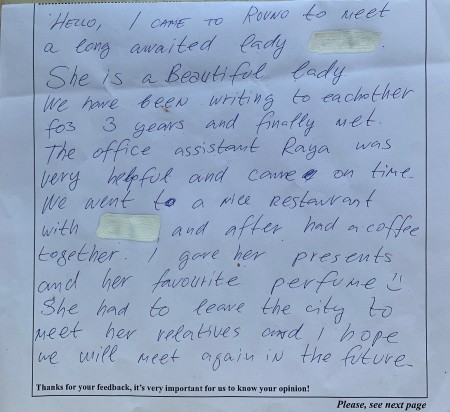 Hello, I came to Rovno to meet
a long awaited lady .
She is a Beautiful lady
We have been writing to eachother
for 3 years and finally met.
The office assistant Raya was
very helpful and came on time.
We went to a nice restaurant
with and after had a coffee
together. I gave her presents
and her favourite perfume ☺
She had to leave the city to
meet her relatives and I hope
we will meet again in the future.
Thanks for your feedback, it's very important for us to know your opinion!
Please, see next page